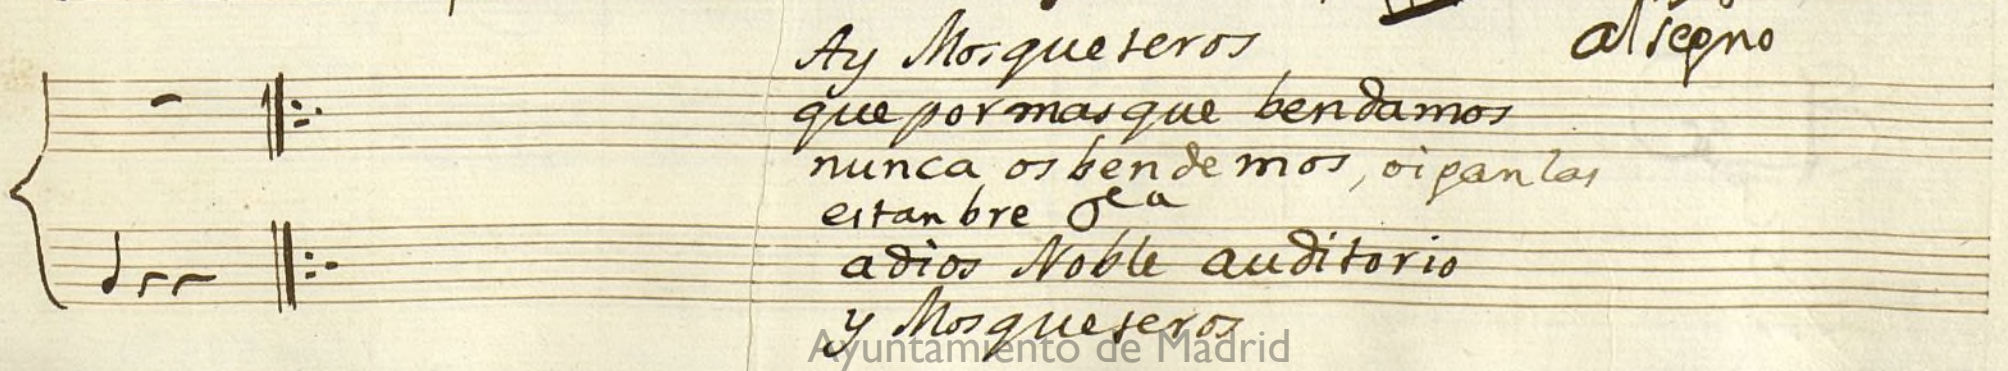 Ay Mosqueteros
al segno
que por mas que bendamos
nunca os bendemos, oigan las
estanbre &ca
adios Noble auditorio
y Mosqueteros
Ayuntamiento de Madrid